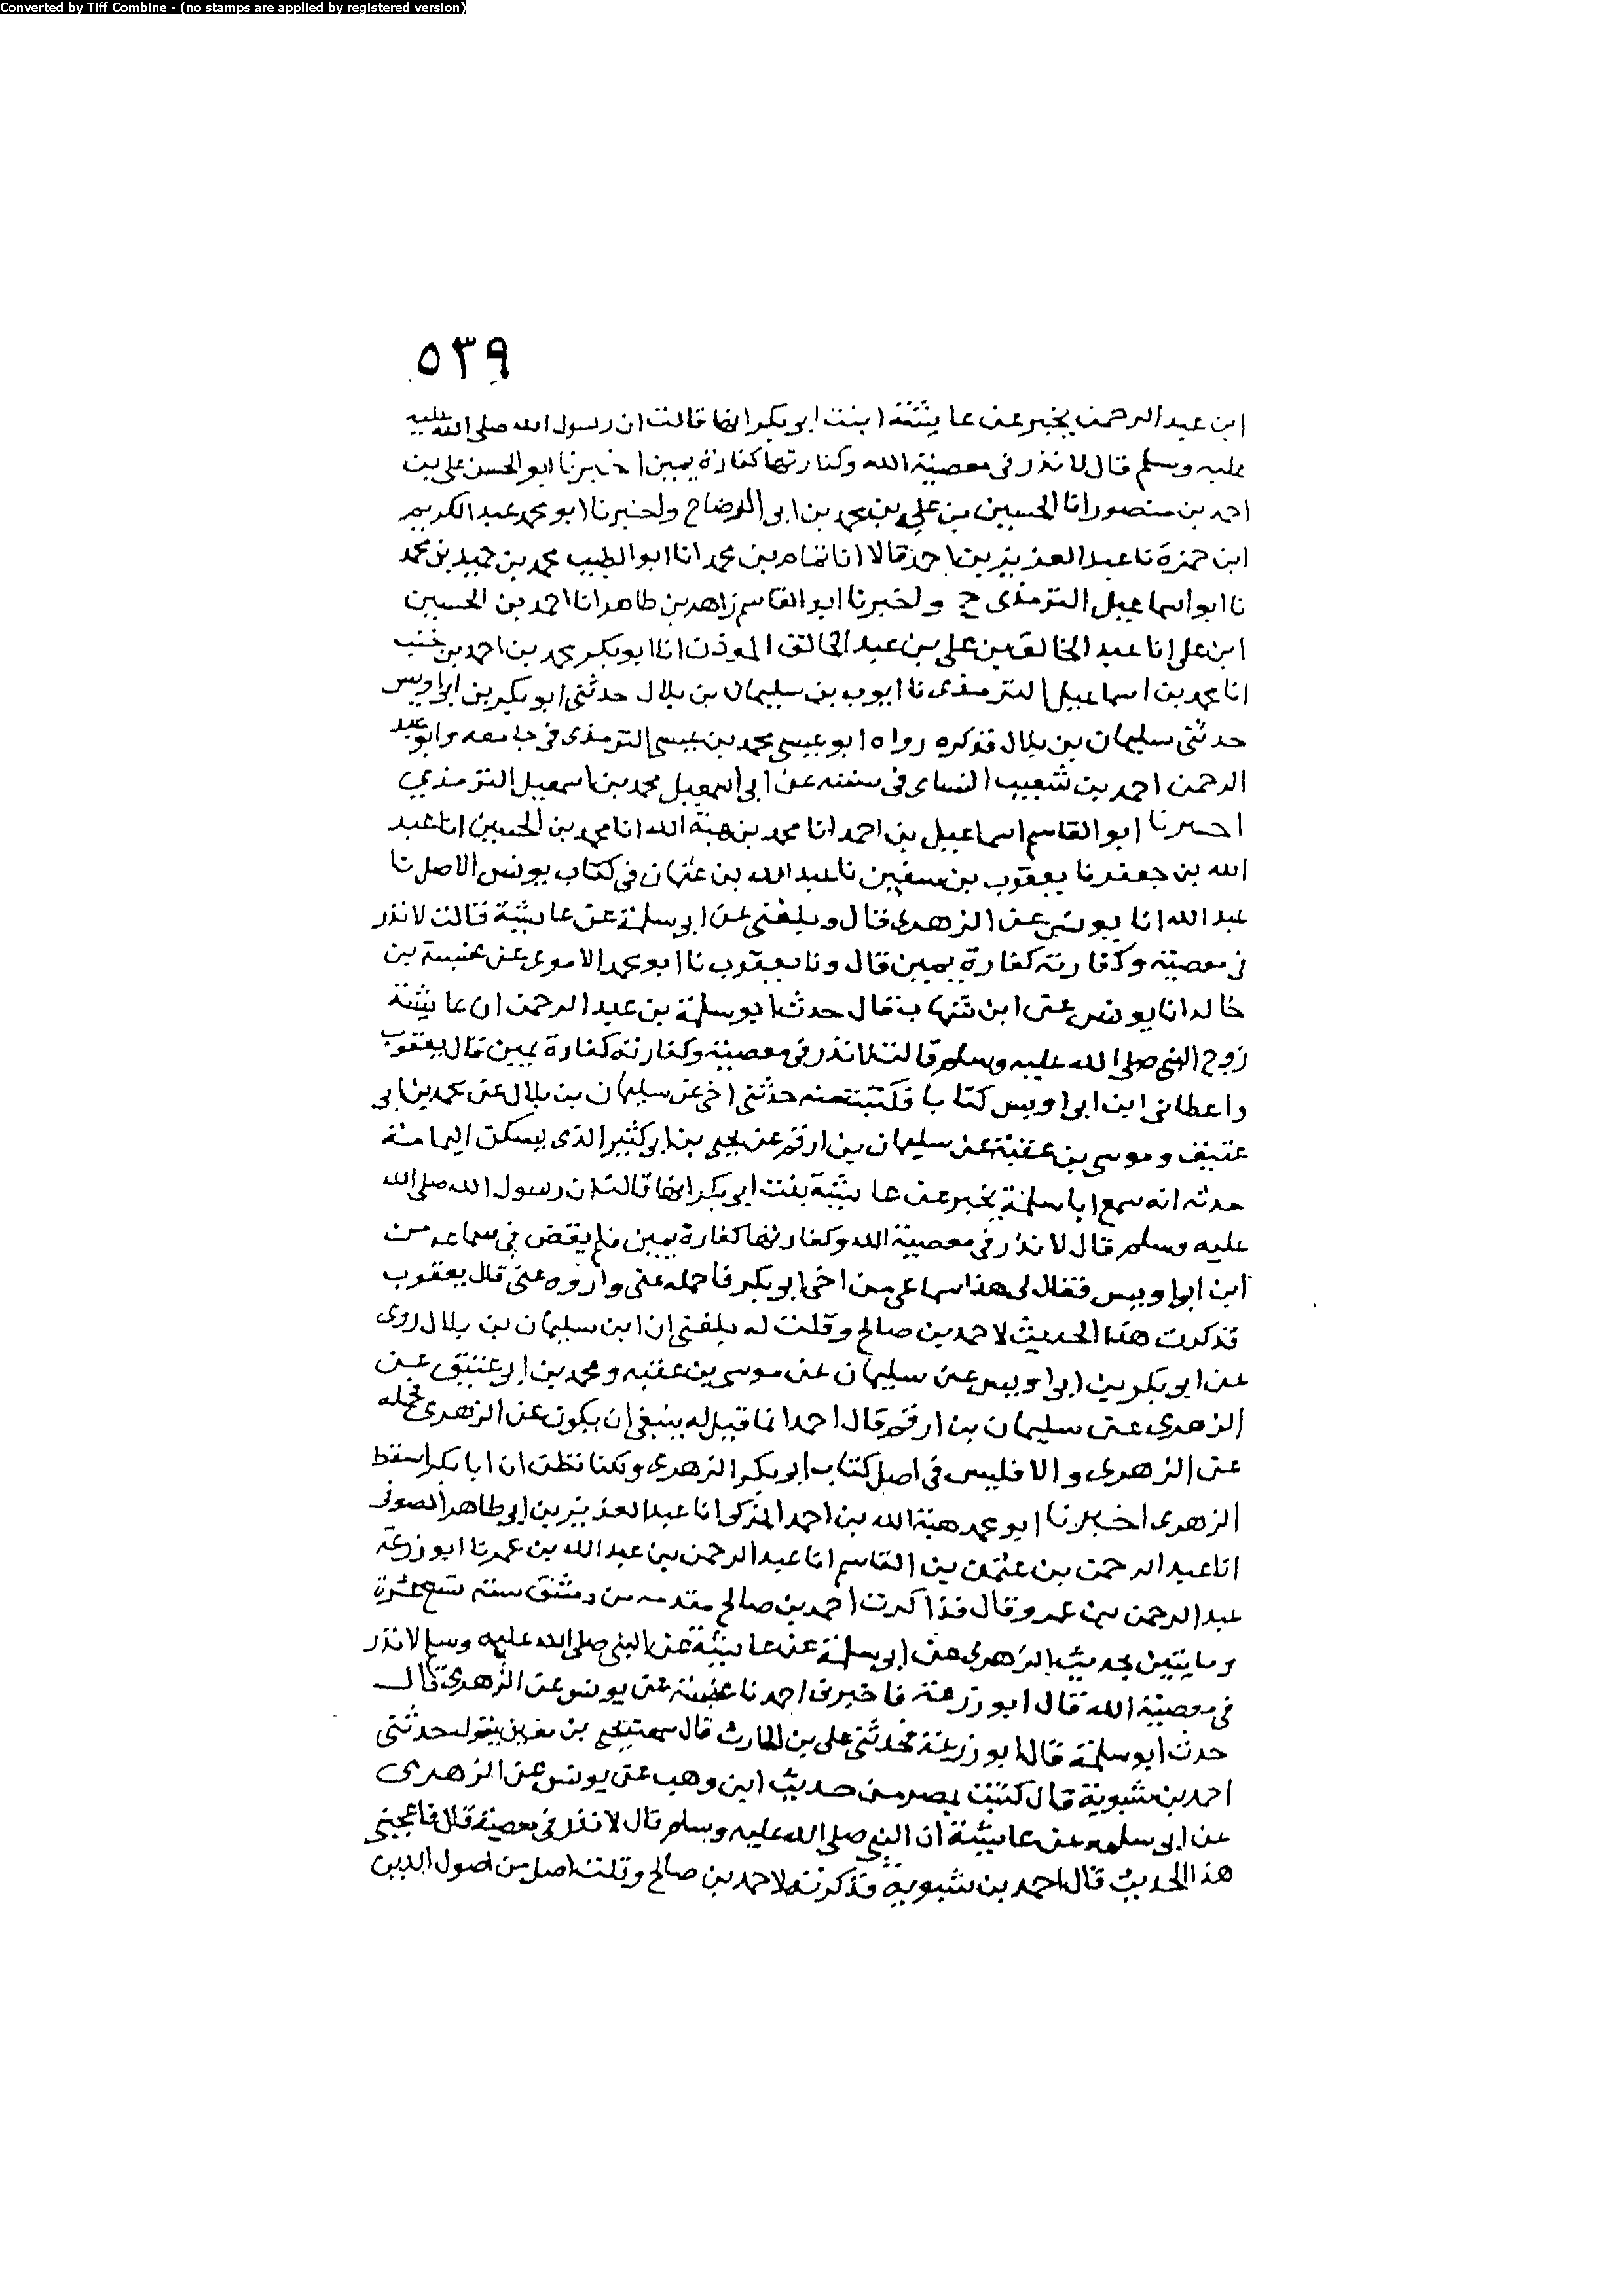 Converted by Tiff Combine - (no stamps are applied by registered version)
٥٣٩
ابن عبد الرحمن يخبر عن عايشة ابنت ابي بكر انها قالت ان رسول الله صلى الله عليه
عليه وسلم قال لا نذر في معصية الله وكفارتها كفارة يمين اخبرنا ابو الحسن علي بن
احمد بن منصور انا الحسين بن علي بن محمد بن ابي الرضاح واخبرنا ابو محمد عبد الكريم
ابن حمزة نا عبد العزيز بن احمد قالا انا تمام بن محمد انا ابو الطيب محمد بن حميد بن محمد
نا ابو اسماعيل الترمذي ح واخبرنا ابو القاسم زاهر بن طاهر انا احمد بن الحسين
ابن علي انا عبد الخالق بن علي بن عبد الخالق الموذن انا ابو بكر محمد بن احمد بن خنب
انا محمد بن اسماعيل الترمذي نا ايوب بن سليمان بن بلال حدثني ابو بكر بن ابي اويس
حدثني سليمان بن بلال فذكره رواه ابو عيسى محمد بن عيسى الترمذي في جامعه وابو عبد
الرحمن احمد بن شعيب النساى في سننه عن ابي اسمعيل محمد بن اسمعيل الترمذي
اخبرنا ابو القاسم اسماعيل بن احمد انا محمد بن هبة الله انا محمد بن الحسين انا عبد
الله بن جعفر نا يعقوب بن سفين نا عبد الله بن عثمان في كتاب يونس الاصل نا
عبد الله انا يونس عن الزهري قال وبلغني عن ابي سلمة عن عايشة قالت لا نذر
في معصية وكفارته كفارة يمين قال ونا يعقوب نا ابو محمد الاموي عن عنبسة بن
خالد انا يونس عن ابن شهاب قال حدث ابو سلمة بن عبد الرحمن ان عايشة
زوج النبي صلى الله عليه وسلم قالت لا نذر في معصية وكفارته كفارة يمين قال يعقوب
واعطاني ابن ابي اويس كتابا فكتبت منه حدثني اخي عن سليمان بن بلال عن محمد بن ابي
عتيق وموسى بن عقبة عن سليمان بن ارقم عن يحيى بن ابي كثير الذي يسكن اليمامة
حدثه انه سمع ابا سلمة يخبر عن عايشة بنت ابي بكر انها قالت ان رسول الله صلى الله
عليه وسلم قال لا نذر في معصية الله وكفارتها كفارة يمين فلم يقض في سماعه من
ابن ابي اويس فقال لي هذا سماعي من اخي ابو بكر فاحمله عني واروه عني قال يعقوب
فذكرت هذا الحديث لاحمد بن صالح وقلت له بلغني ان ابن سليمان بن بلال روى
عن ابي بكر بن ابي اويس عن سليمان عن موسى بن عقبه ومحمد بن ابي عتيق عن
الزهري عن سليمان بن ارقم قال احمد انما قيل له ينبغي ان يكون عن الزهري فجمله
عن الزهري والا فليس في اصل كتاب ابي بكر الزهري وكنا نظن ان ابا بكر اسقط
الزهري اخبرنا ابو محمد هبة الله بن احمد المزكى انا عبد العزيز بن ابي طاهر الصوفي
انا عبد الرحمن بن عثمن بن القاسم انا عبد الرحمن بن عبد الله بن عمر نا ابو زرعة
عبد الرحمن بن عمرو قال فذاكرت احمد بن صالح مقدمه من دمشق سنة سبع عشرة
ومايتين بحديث الزهري عن ابي سلمة عن عايشة عن النبي صلى الله عليه وسلم لا نذر
في معصية الله قال ابو زرعة فاخبرني احمد نا عنبسة عن يونس عن الزهري قال
حدث ابو سلمة قال ابو زرعة فحدثني علي بن الحارث قال سمعت يحيى بن معين يقول حدثني
احمد بن شبوية قال كتبت بمصر من حديث ابن وهب عن يونس عن الزهري
عن ابي سلمه عن عايشة ان النبي صلى الله عليه وسلم قال لا نذر في معصية قال فاعجبني
هذا الحديث قال احمد بن شبوية فذكرته لاحمد بن صالح وقلت اصل من اصول الدين